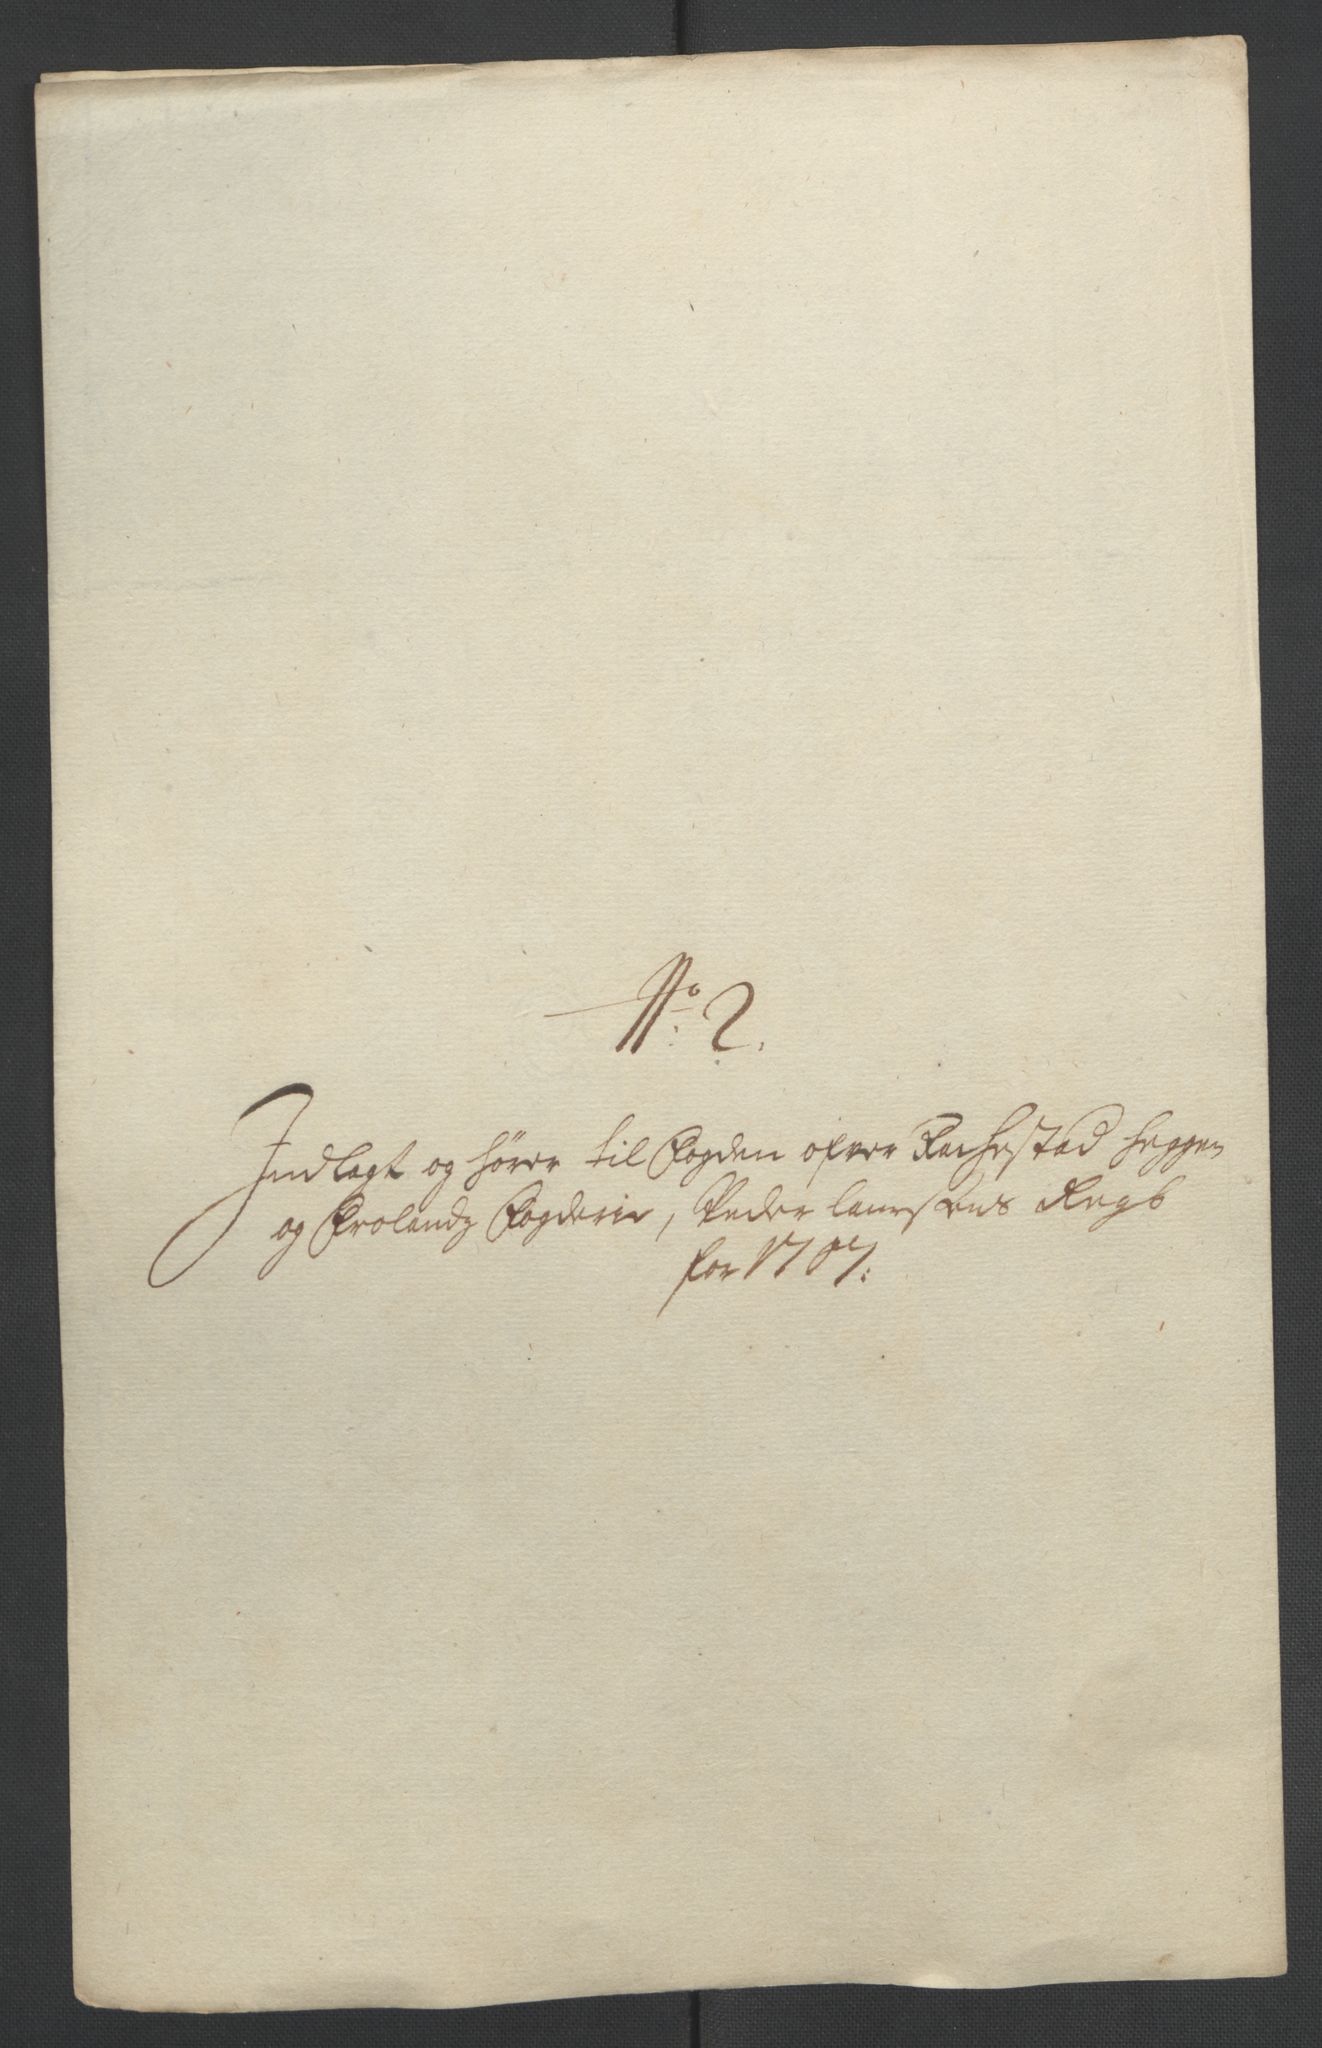 No: 2.
Indlagt og hører til Fogden ofver Rachestad Heggen
og Frølands Fogderie, Peder Laursens Regb
for 1707: